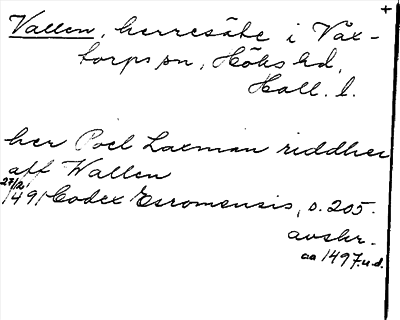 +
Vallen, herresäte i Våx-
torps sn, Höks hd,
Hall. l.
her Poel Laxman riddher
aff Wallen
27/2 1491 Codex Esromensis, s. 205.
avskr.
ca 1497 u.d.